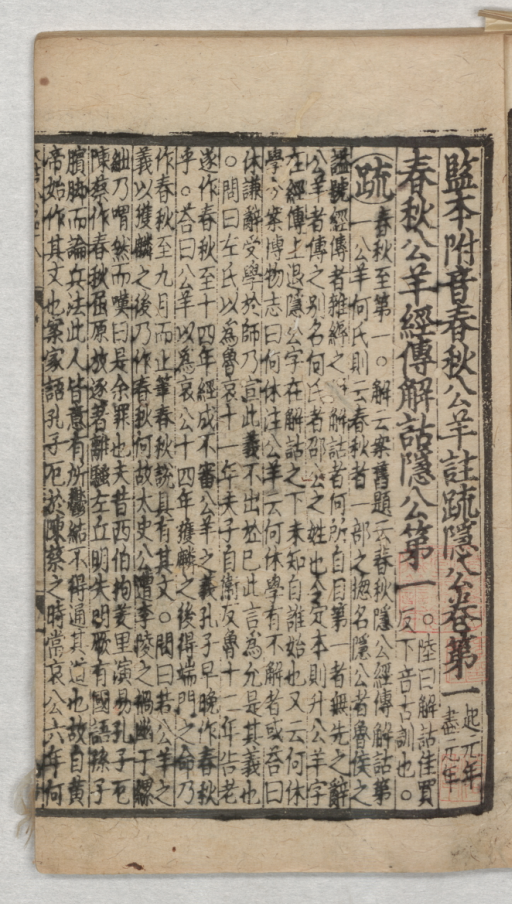 監本附音春秋公羊註疏隱公卷第一 起元年盡元年
春秋公羊經傳解詁隱公第一 ○陸曰解詁佳買反下音古訓也○
疏 春秋至第一○解云案舊題云春秋隱公經傳解詁第
一公羊何氏則云春秋者一部之揔名隱公者魯侯之
謚號經傳者雜縟之稱解詁者何所自目第一者無先之辭
公羊者傳之別名何氏者邵公之姓也今定本則升公羊字
在經傳上退隱公字在解詁之下未知自誰始也又云何休
學今案博物志曰何休注公羊云何休學有不解者或荅曰
休謙辭受學於師乃宣此義不出於已此言爲允是其義也
○問曰左氏以爲魯哀十一年夫子自衛反魯十二年告老
遂作春秋至十四年經成不審公羊之義孔子早晚作春秋
乎○荅曰公羊以爲哀公十四年獲麟之後得端門之命乃
作春秋至九月而止筆春秋說具有其文○問曰若公羊之
義以獲麟之後乃作春秋何故太史公遭李陵之禍幽于縲
紲乃喟然而嘆曰是余罪也夫昔西伯拘羑里演易孔子厄
陳蔡作春秋屈原放逐著離騷左丘明失明厥有國語孫子
臏脚而論兵法此人皆意有所鬱結不得通其道也故自黃
帝始作其文也案家語孔子厄於陳蔡之時當哀公六年何